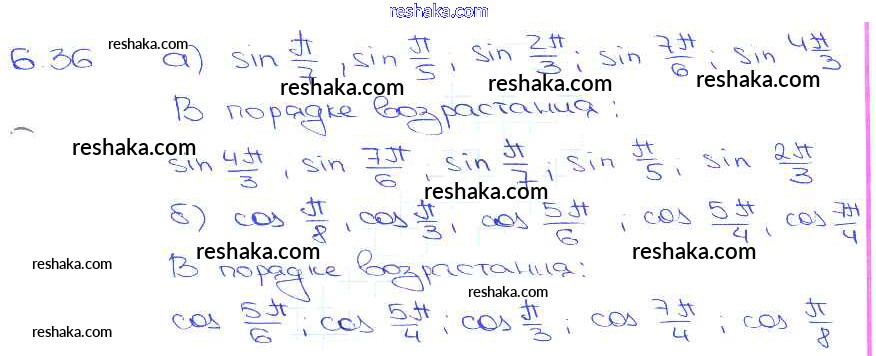 reshaka.com
6.36 reshaka.com а) sin π/7, sin π/5; sin 2π/3; sin 7π/6; sin 4π/3
reshaka.com reshaka.com reshaka.com
В порядке возрастания:
reshaka.com
sin 4π/3, sin 7π/6, sin π/7; sin π/5; sin 2π/3
reshaka.com
б) cos π/8, cos π/3, cos 5π/6; cos 5π/4, cos 7π/4
reshaka.com reshaka.com reshaka.com
В порядке возрастания:
reshaka.com
reshaka.com cos 5π/6; cos 5π/4; cos π/3; cos 7π/4; cos π/8